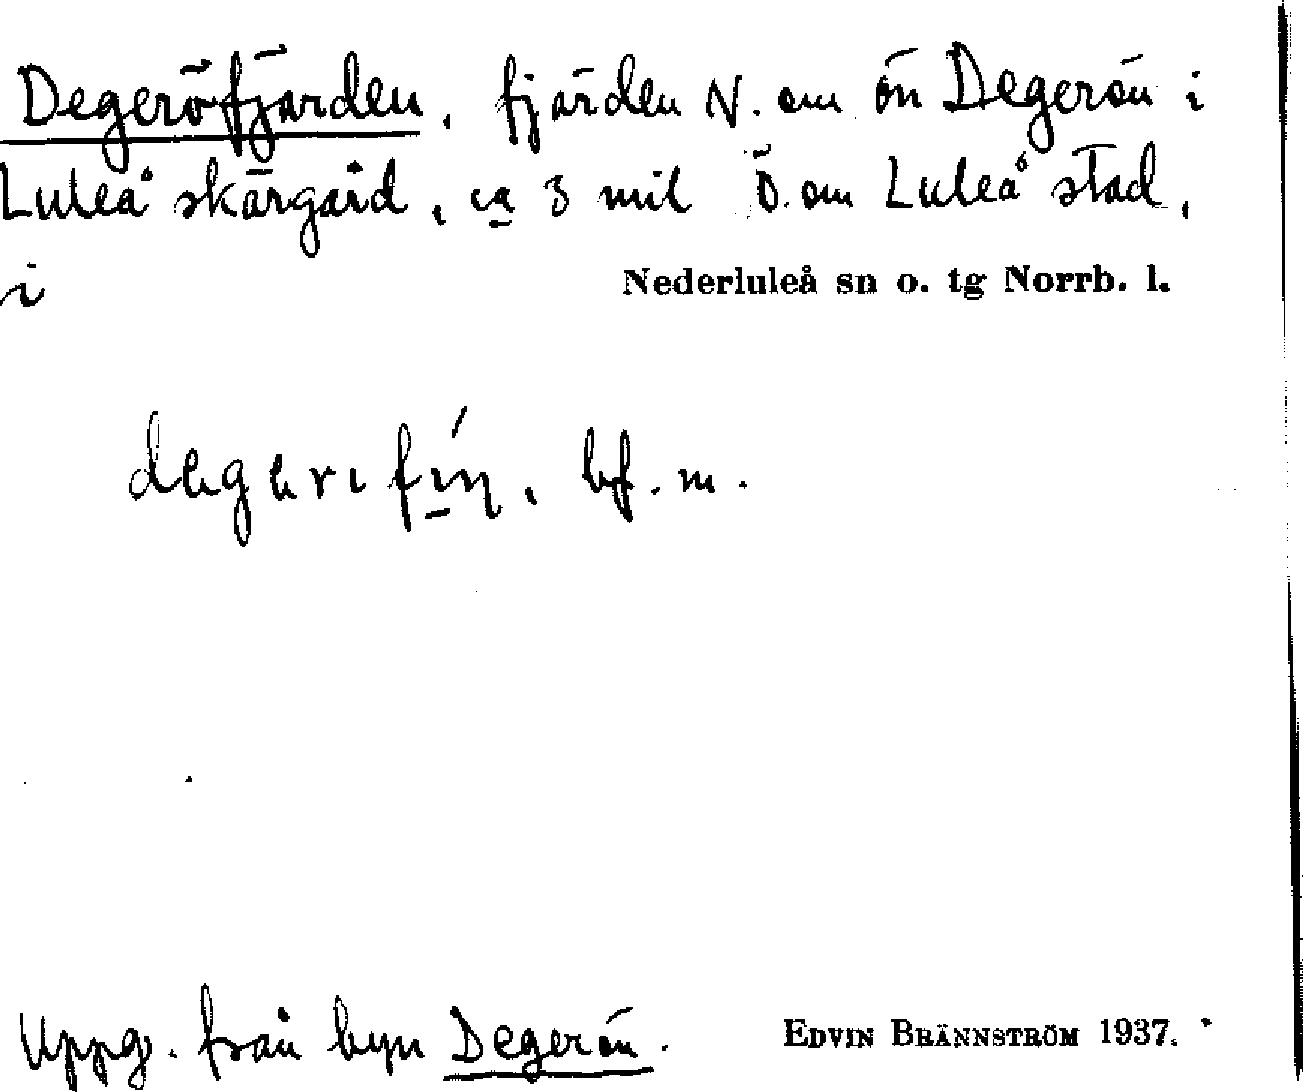 Degeröfjärden, fjärden N. om ön Degerön i
Luleå skärgård, ca 3 mil Ö. om Luleå stad,
i
Nederluleå sn o. tg Norrb. l.
bf. m.
Uppg. från byn Degerön.
EDVIN BRÄNNSTRÖM 1937.